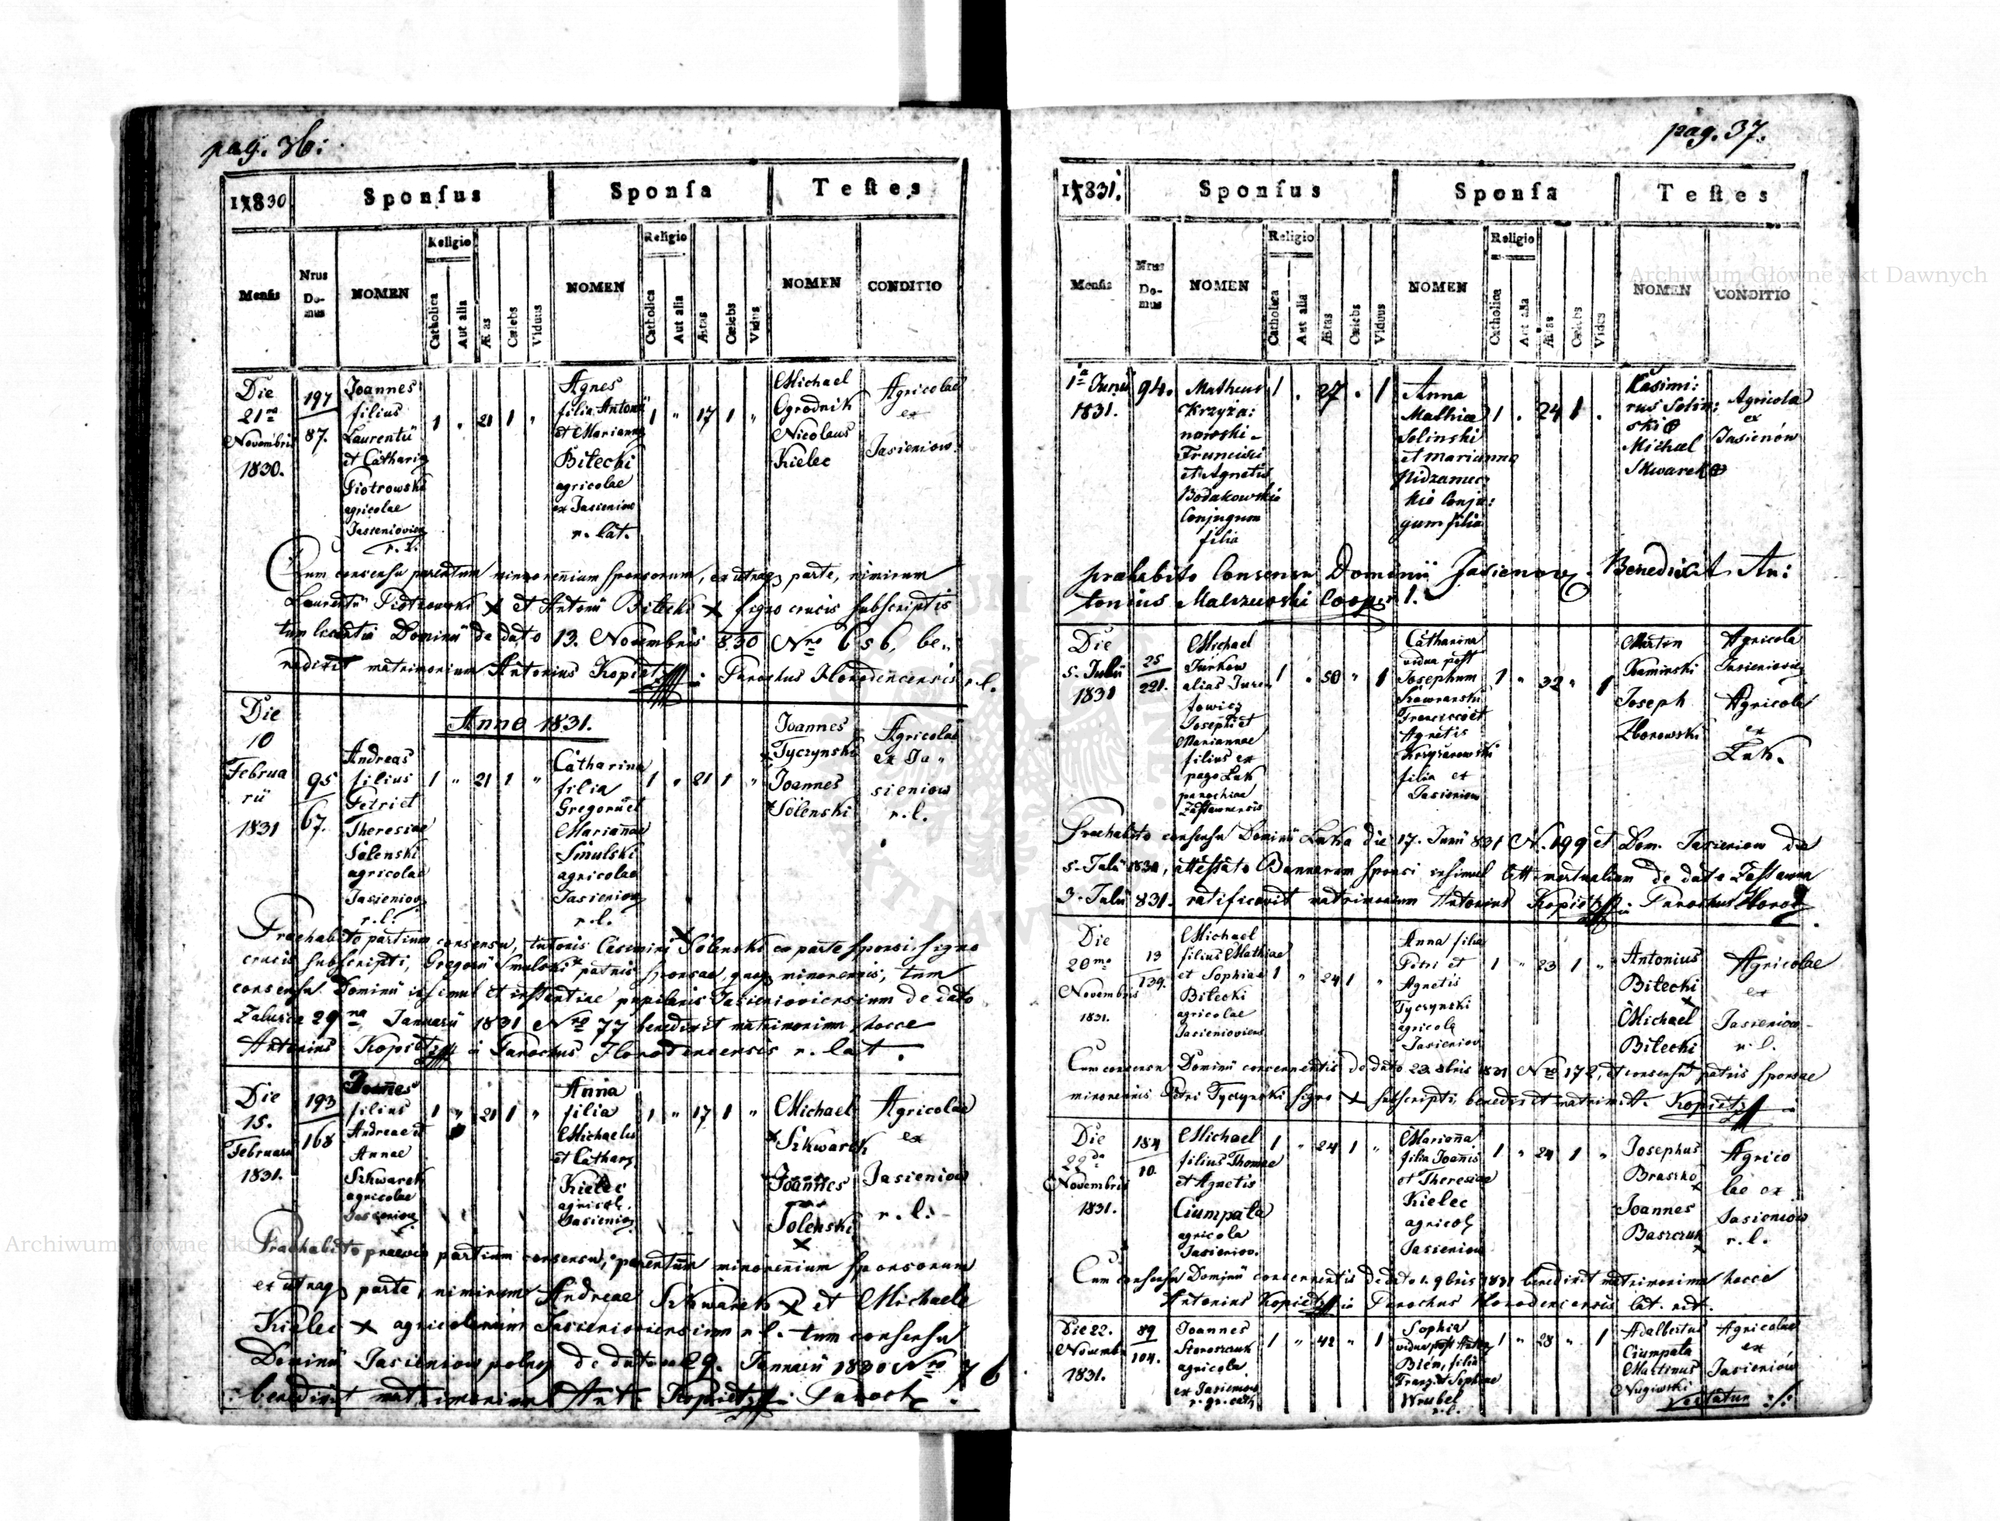 pag. 36:
1830
Sponsus
Sponsa
Testes
Mensis
Nrus Domus
NOMEN
Religio
Catholica
Aut alia
Ætas
Cœlebs
Viduus
NOMEN
Religio
Catholica
Aut alia
Ætas
Cœlebs
Vidus
NOMEN
CONDITIO
Die
21na
Novembris
1830.
197
87.
Joannes
filius
Laurentii
et Catharin
Piotrowski
agricolae
r. l.
1 " 21 1 "
Agnes
filia Antonii
et Mariannae
Bilecki
agricolae
ex Jasieniow
r. lat.
1 " 17 1 "
Michael
Ogrodnik
Nicolaus
Kielec
Agricolae
ex
Jasieniow.
Cum consensu parentum minorennium sponsorum, ex utraq parte, nimirum
Laurentii Piotrowski X et Antonii Bilecki X signo crucis subscriptis
tum licentia Dominii de dato 13. Novembris 830 Nro 656, be„
nedixit matrimonium Antonius Kopietz Parochus Horodencensis r. l.
Anno 1831.
Die
10
Februa
rii
1831
95
67.
Andreas
filius
Petri et
Theresiae
Solenski
agricolae
Jasieniow
r. l.
1 " 21 1 "
Catharina
filia
Gregorii et
Mariannae
Smulski
agricolae
Jasieniow
r. l.
1 " 21 1 "
Joannes
Tyczynski
Joannes
Solenski
Agricolae
ex Ja„
sieniow
r. l.
Praehabito partium consensu, tutoris Casimiri Solenski ex parte sponsi signo
crucis subscripti, Gregorii Smulski patris sponsae, quoq minorennis, tum
consensu Dominii insimul et instantiae pupilaris Jasienioviensium de dato
29na Januarii 1831 Nro 77 benedixit matrimonium hocce
Antonius Kopietz Parochus Horodencensis r. lat.
Die
15.
Februarii
1831.
193
168
Joannes
filius
Andreae et
Annae
Szkwarek
agricolae
Jasieniow
1 " 21 1 "
Anna
filia
Michaelis
et Cathar
Kielec
agricol.
Jasieniow
1 " 17 1 "
Michael
Szkwarek
Joannes
Solenski
X
Agricolae
ex
Jasieniow
r. l.
Praehabito praevio partium consensu, parentum minorennium sponsorum
ex utraq parte, nimirum Andreae Szkwarek X et Michaele
Kielec X agricolarum Jasienioviensium r. l. tum consensu
Dominii Jasieniow de dato 29. Januarii 1830 Nro 76
benedixit matrimonium Ant. Kopietz Paroch.
pag. 37.
1831.
Sponsus
Sponsa
Testes
Mensis
Nrus Domus
NOMEN
Religio
Catholica
Aut alia
Ætas
Cœlebs
Viduus
NOMEN
Religio
Catholica
Aut alia
Ætas
Cœlebs
Vidus
NOMEN
CONDITIO
1a Junii
1831.
94.
Matheus
Krzyża:
nowski
Francisci
et Agnetis
Bodakowskie
Conjugum
filia
1 . 27 . 1
Anna
Mathiae
Solinski
et marianna
Conju:
gum filia
1 . 24 1 .
Kasimi:
rus Solin:
ski
Michael
Skwarek
Agricola
ex
Jasienów
praehabito Consensu Dominii Jasienow. Benedixit An:
tonius Malczewski Cooper.
Die
5. Julii
1831
25
221.
Michael
Jurkow
alias Jure„
Josephi et
Mariannae
filius ex
pago Luk
parochiae
1 . 50 " 1
Catharina
vidua post
Josephum
Francisco et
Agnetis
Krzyżanowski
filia ex
Jasieniow
1 " 32 " 1
Martin
Kaminski
Joseph
Zborowski
Agricola
Agricola
ex
Luk.
Praehabito consensu Dominii Luka die 17. Junii 831 N. 199 et Dom. Jasieniow die
5. Julii 1830, attestato Bannorum sponsi insimul de dato
3. Julii 831. ratificavit matrimonium Antonius Kopietz Parochus Horod
Die
20ma
Novembris
1831.
13
139.
Michael
filius Mathiae
et Sophiae
Bilecki
agricolae
1 " 24 1
Anna filia
Petri et
Agnetis
Tyczynski
agricola
Jasieniow
1 " 23 1 "
Antonius
Bilecki
Michael
Bilecki
Agricolae
ex
Jasieniow
r. l.
Cum consensu Dominii concernentis de dato 23. 1831 Nro 172, et consensu patris sponsae
minorennis Petri Tyczynski signo X subscripti, benedixit matrimon. Kopietz
Die
22da
Novembris
1831.
184
10.
Michael
filius Thomae
et Agnetis
Ciumpała
agricola
Jasieniow.
1 " 24 1 "
Marianna
filia Joannis
et Theresiae
Kielec
agricol
Jasieniow
1 " 24 1 "
Josephus
Braszko
Joannes
Baszczuk
Agrico
lae ex
Jasieniow
r. l.
Cum consensu Dominii concernentis de dato 1. 9bris 1831 benedixit matrimonium hocce
Antonius Kopietz Parochus Horodencensis lat. rit.
Die 22.
Novemb
1831.
89
104.
Joannes
agricola
ex Jasieniow
1 " 42 " 1
Sophia
vidua post
Bien, filia
Franz. et Sophiae
Wrubel
r. l.
1 " 28 " 1
Adalbertus
Ciumpała
Martinus
Agricolae
ex
Jasieniów
Vertatur :/:
Archiwum Główne Akt Dawnych
Archiwum Główne Akt Dawnych